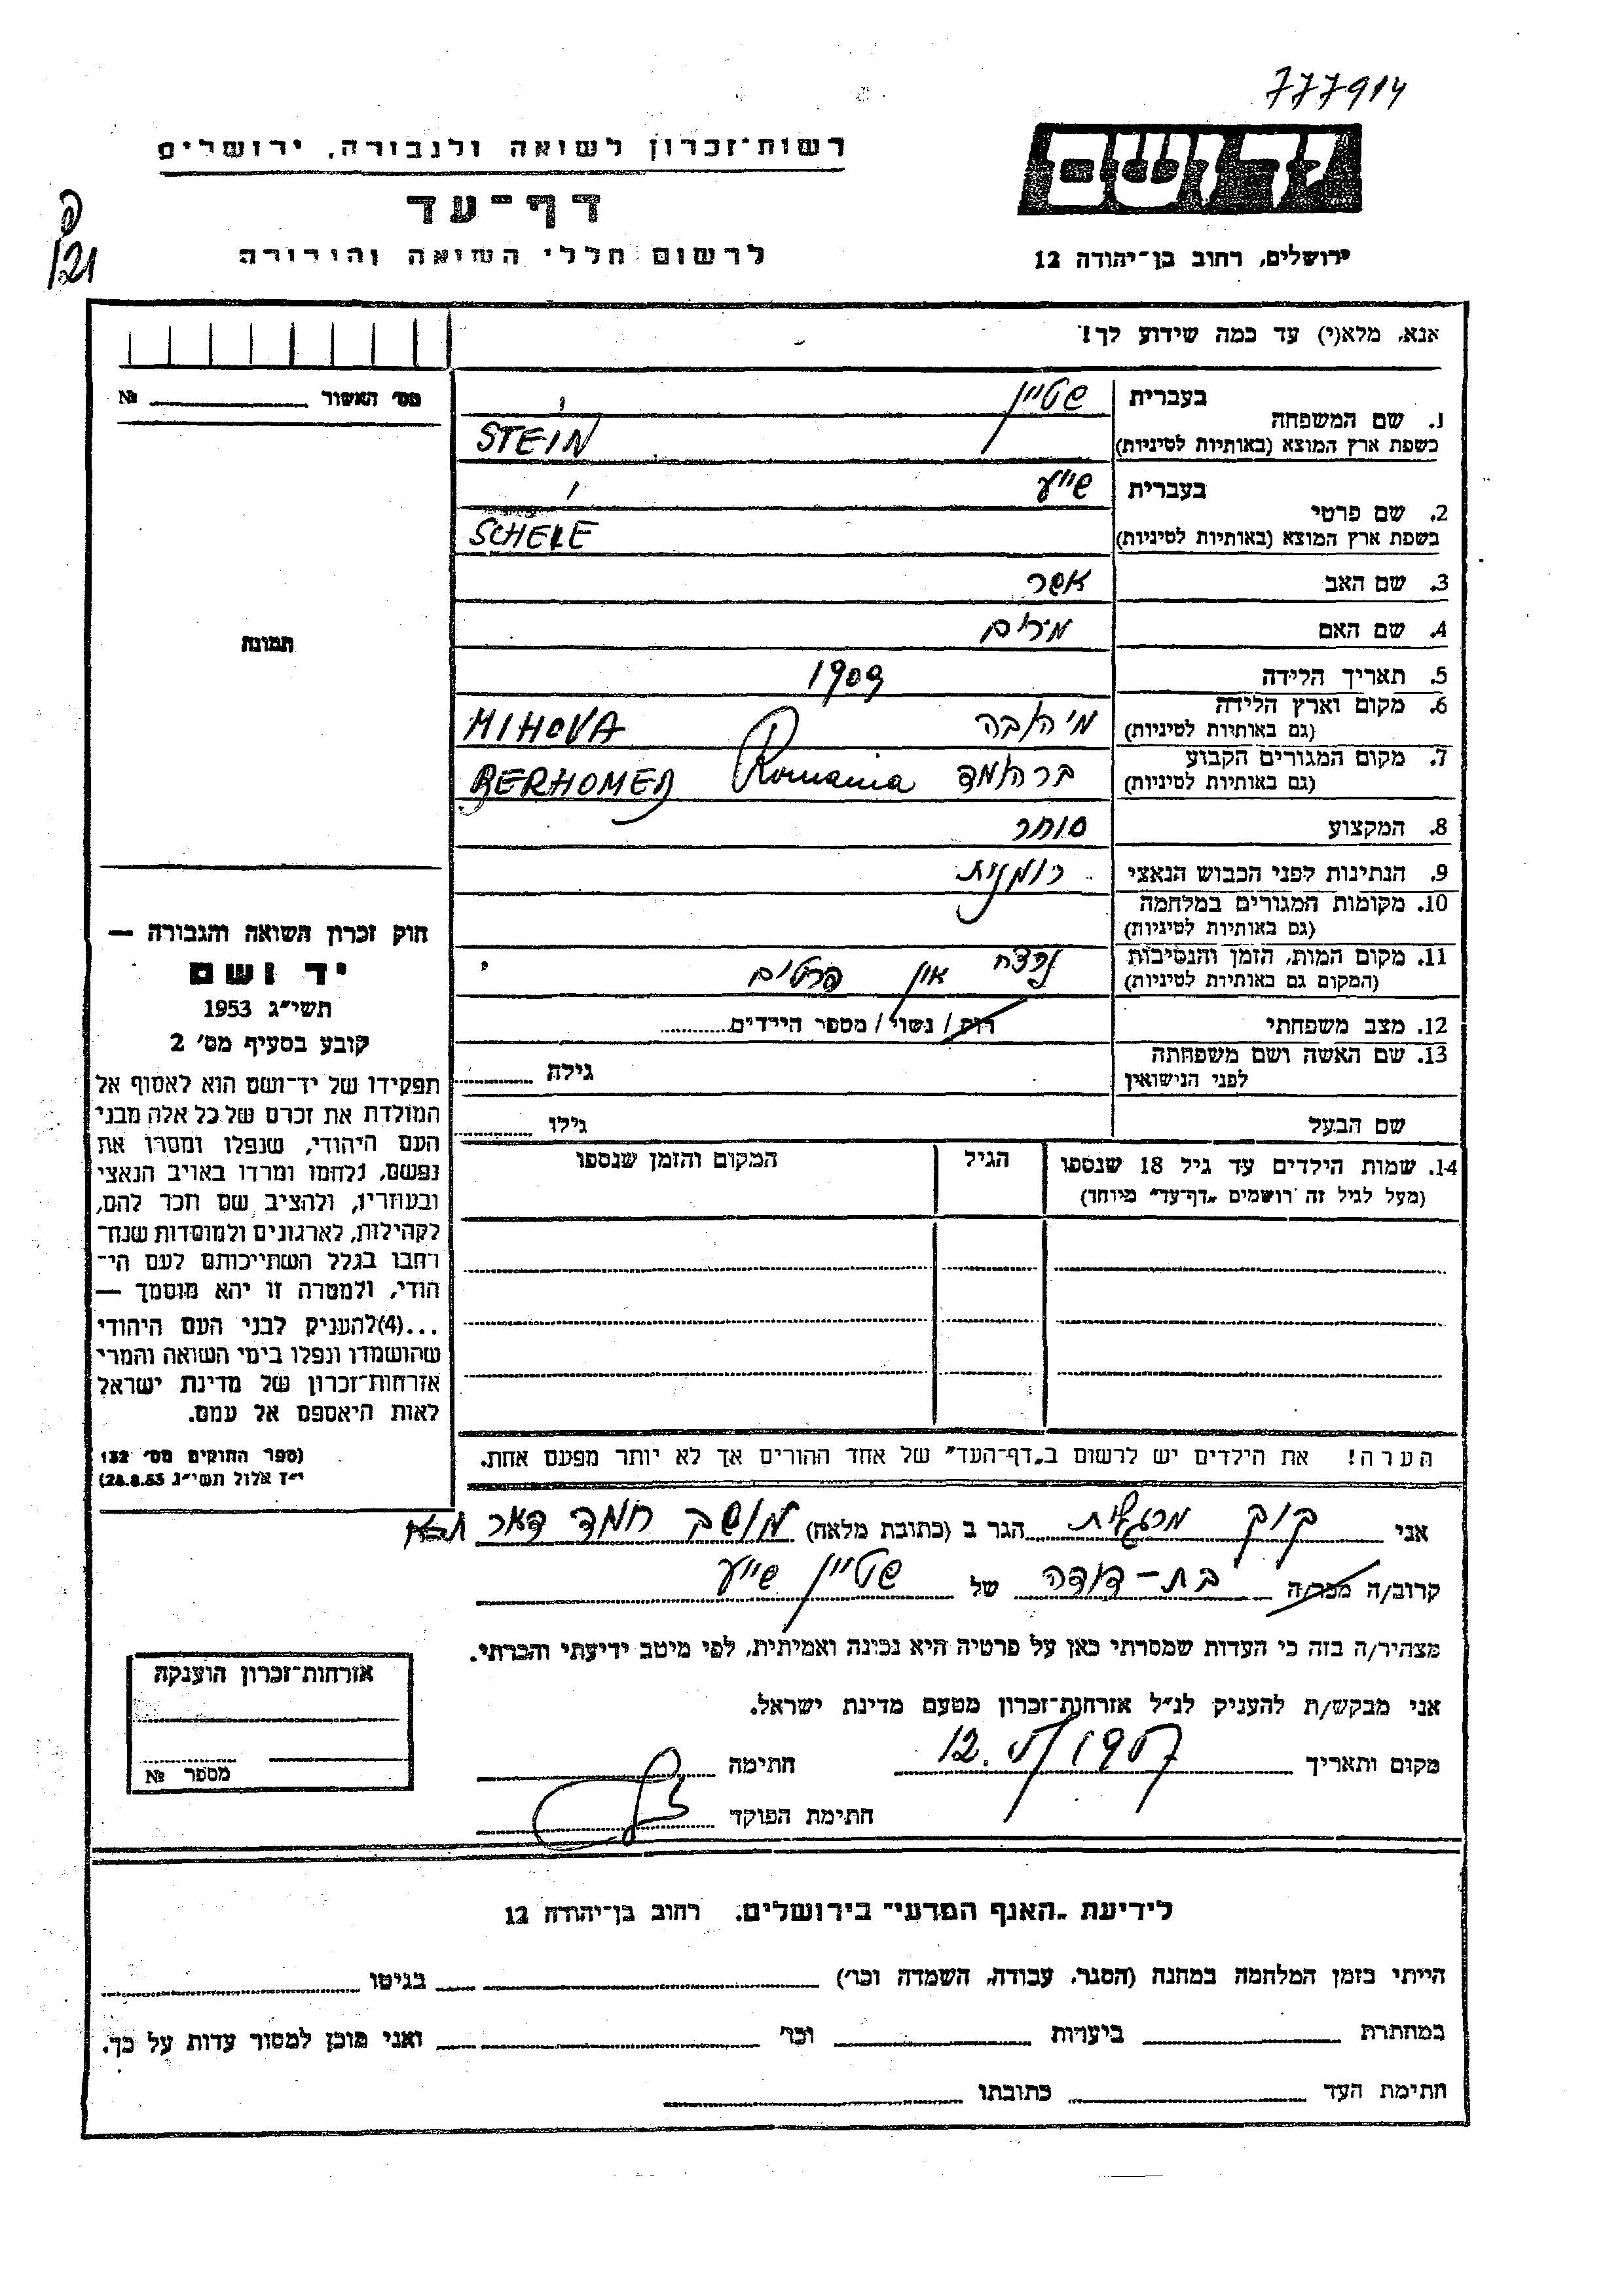 777914
יד ושם
רשות־זכרון לשואה ולגבורה, ירושלים
דף־עד
לרשום חללי השואה והגבורה
ירושלים, רחוב בן־יהודה 12
121
אנא, מלא(י) עד כמה שידוע לך!
מס׳ האשור № 
1. שם המשפחה בעברית שטיין
בשפת ארץ המוצא (באותיות לטיניות) STEIN
2. שם פרטי בעברית שייע
בשפת ארץ המוצא (באותיות לטיניות) SCHEIE
3. שם האב אשר
4. שם האם מרים
תמונה
5. תאריך הלידה 1909
6. מקום וארץ הלידה (גם באותיות לטיניות) מיהובה MIHOVA
7. מקום המגורים הקבוע (גם באותיות לטיניות) ברהומד Romania BERHOMED
8. המקצוע סוחר
9. הנתינות לפני הכבוש הנאצי רומנית
10. מקומות המגורים במלחמה (גם באותיות לטיניות)
11. מקום המות, הזמן והנסיבות (המקום גם באותיות לטיניות) נרצח אין פרטים
12. מצב משפחתי רווק / נשוי / מספר הילדים
13. שם האשה ושם משפחתה לפני הנישואין גילה
שם הבעל גילו
14. שמות הילדים עד גיל 18 שנספו הגיל המקום והזמן שנספו
(מעל לגיל זה רושמים „דף־עד״ מיוחד)
הערה! את הילדים יש לרשום ב„דף־העד״ של אחד ההורים אך לא יותר מפעם אחת.
חוק זכרון השואה והגבורה —
יד ושם
תשי״ג 1953
קובע בסעיף מס׳ 2
תפקידו של יד־ושם הוא לאסוף אל
המולדת את זכרם של כל אלה מבני
העם היהודי, שנפלו ומסרו את
נפשם, נלחמו ומרדו באויב הנאצי
ובעוזריו, ולהציב שם וזכר להם,
לקהילות, לארגונים ולמוסדות שנח־
רבו בגלל השתייכותם לעם הי־
הודי, ולמטרה זו יהא מוסמך —
...(4)להעניק לבני העם היהודי
שהושמדו ונפלו בימי השואה והמרי
אזרחות־זכרון של מדינת ישראל
לאות היאספם אל עמם.
(ספר החוקים מס׳ 132
י״ז אלול תשי״ג 28.8.53)
אני קוק מרגלית הגר ב (כתובת מלאה) מושב חמד דאר
קרוב/ה מכר/ה בת-דודה של שטיין שייע
מצהיר/ה בזה כי העדות שמסרתי כאן על פרטיה היא נכונה ואמיתית, לפי מיטב ידיעתי והכרתי.
אני מבקש/ת להעניק לנ״ל אזרחות־זכרון מטעם מדינת ישראל.
מקום ותאריך חתימה
חתימת הפוקד
אזרחות־זכרון הוענקה
מספר №
לידיעת „האגף המדעי״ בירושלים, רחוב בן־יהודה 12
הייתי בזמן המלחמה במחנה (הסגר, עבודה, השמדה וכו׳) בגיטו
במחתרת ביערות וכו׳ ואני מוכן למסור עדות על כך.
חתימת העד כתובתו